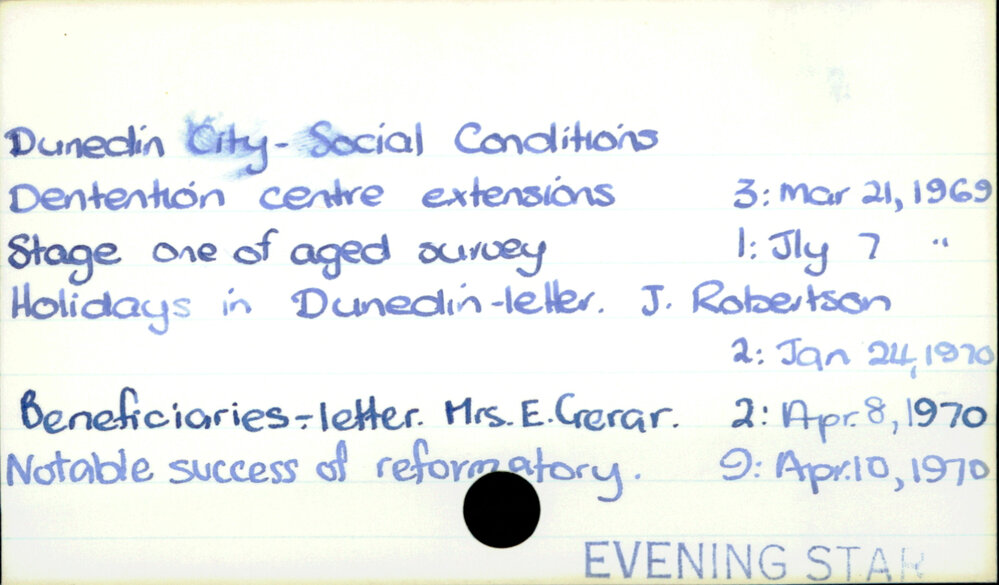 Dunedin City - Social Conditions
Dentention centre extensions 3: Mar 21, 1969
Stage one of aged survey 1: Jly 7 "
Holidays in Dunedin - letter. J. Robertson
2: Jan 24, 1970
Beneficiaries - letter. Mrs. E. Gerar. 2: Apr. 8, 1970
Notable success of reformatory. 9: Apr. 10, 1970
EVENING STAR